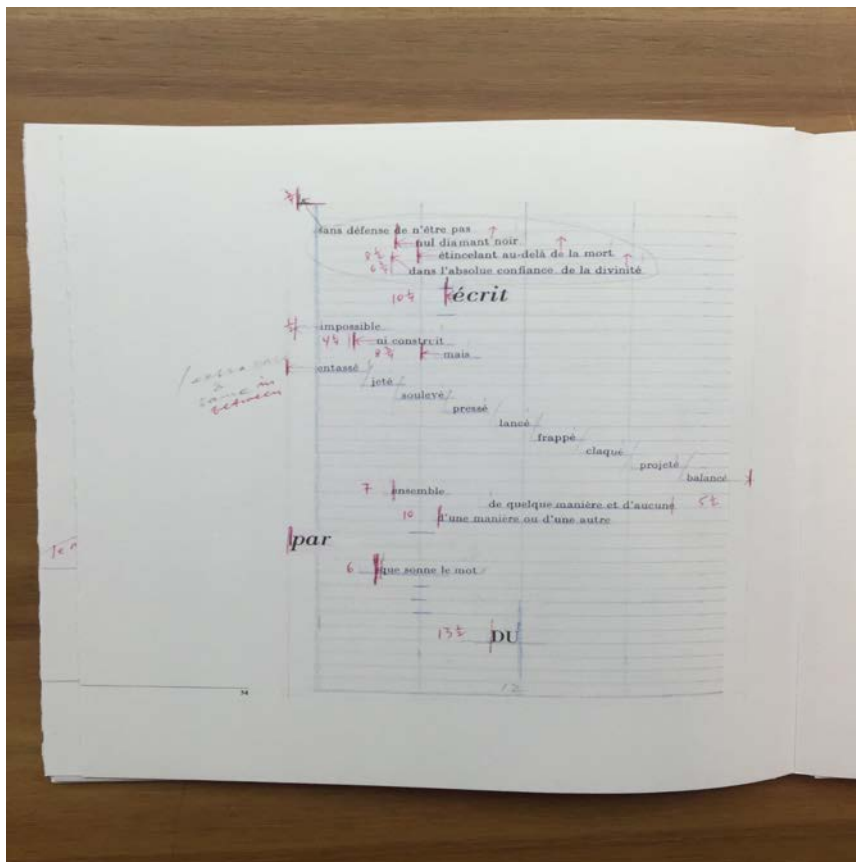 sans défense de n'être pas
nul diamant noir
8 ½ étincelant au-delà de la mort
6 ¼ dans l'absolue confiance de la divinité
10 ¼ écrit
½ impossible
4 ¼ ni construit
8 ¾ mais
entassé
same in
between
jeté
soulevé
pressé
lancé
frappé
claqué
projeté
balancé
7 ensemble
de quelque manière et d'aucune 5 ½
10 d'une manière ou d'une autre
par
6 que sonne le mot
13 ½ DU
12
34